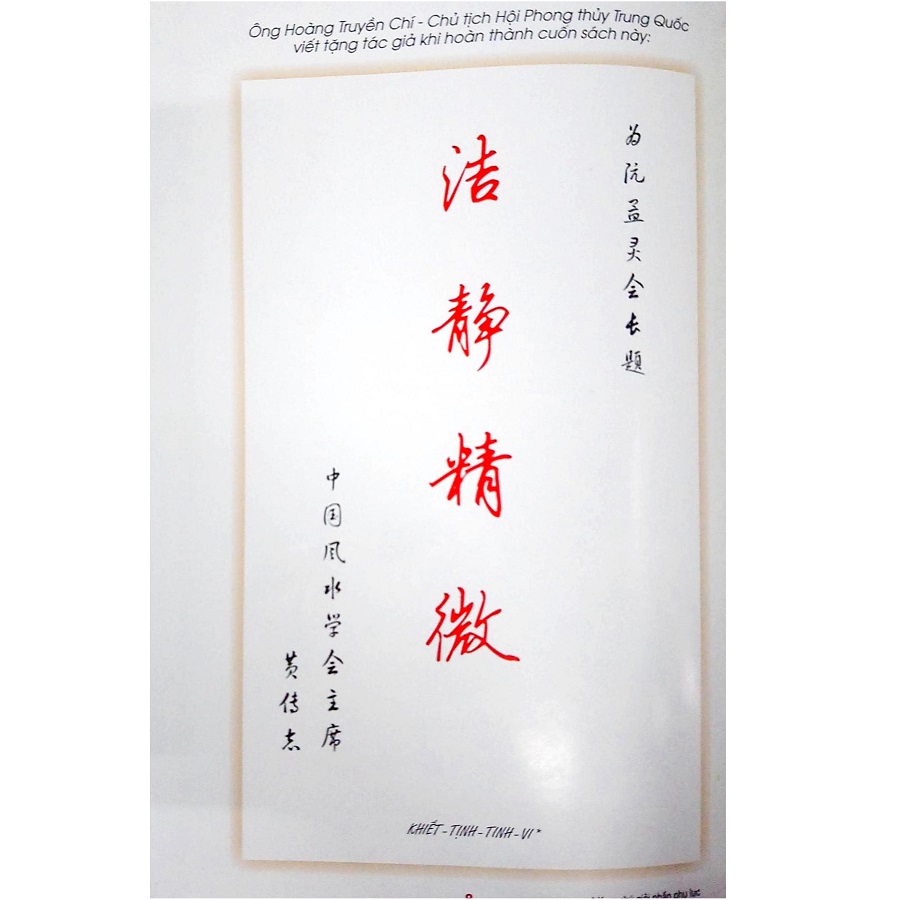 Ông Hoàng Truyền Chí - Chủ tịch Hội Phong thủy Trung Quốc
viết tặng tác giả khi hoàn thành cuốn sách này:
为阮孟灵会长题
洁静精微
中国风水学会主席
黄传志
KHIẾT - TỊNH - TINH - VI *